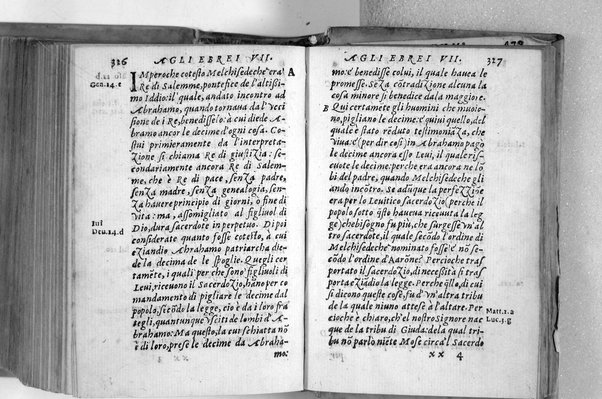 326 AGLI EBREI VII.
IMperoche cotesto Melchisedeche era
Re di Salemme, pontefice de l'altissi-
mo Iddio: il quale, andato incontro ad
Abrahamo, quando tornava da l'ucci
sione de i Re, benedisselo: à cui diede A-
brahamo ancor le decime d'ogni cosa. Co-
stui primieramente da l'interpreta-
zione si chiama Re di giustizia: se-
condariamente ancora Re di Salem-
me, che è Re di pace, senza padre,
senza madre, senza genealogia, sen-
za havere principio di giorni, ò fine di
vita: ma, assomigliato al figliuol di
Dio, dura sacerdote in perpetuo. Di poi
considerate quanto fosse cotesto, à cui
eziandio Abrahamo patriarcha die-
de la decima de le spoglie. Quegli cer
tamēte, i quali per che sono figliuoli di
Leui, riceuono il Sacerdozio, hano per co
mandamento di pigliare le decime dal
popolo, secōdo la legge, ciò è da i loro fra
tegli, quantunque usciti de lombi d'A-
brahamo: Ma questo, la cui schiatta nō
è di loro, prese le decime da Abraha-
mo:
A
Gen.14.c
iui
Deu.14.d
AGLI EBREI VII. 327
mo: e benedisse colui, il quale hauea le
promesse. Senza cōtradizione alcuna la
cosa minore si benedice da la maggiore.
B Qui certamēte gli huomini che muoio-
no, pigliano le decime: e quiui quello, del
quale è stato rēduto testimonianza, che
viua: e (per dir cosi) in Abrahamo pagò
le decime ancora esso Leui, il quale ris-
cuote le decime: perche era ancora ne lō
bi del padre, quando Melchisedeche gli
andò incōtro. Se adūque la perfezziōe
era per lo Leuitico Sacerdozio (perche il
popolo sotto q̄sto haueua riceuuta la leg
ge) che bisogno fu piu, che surgesse vn'al
tro sacerdote, il quale secōdo l'ordine di
Melchisedeche nominato fosse: e nō se-
cōdo l'ordine d'Aarōne? Percioche tras
portato il sacerdozio, di necessità si tras
porta eziādio la legge. Perche q̄llo, di cui
si dicono queste cose, fu d'vn'altra tribu
de la quale niuno attese à l'altare. Per
cioche è chiaro, ch'el nostro Signore nac
que de la tribu di Giuda: de la qual tri-
bu nō parlò niēte Mose circa'l Sacerdo
xx 4
Matt.1.a
Luc.3.g